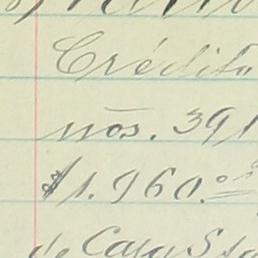 Crédito
nos. 391
$1.960.00
de Casa Sta